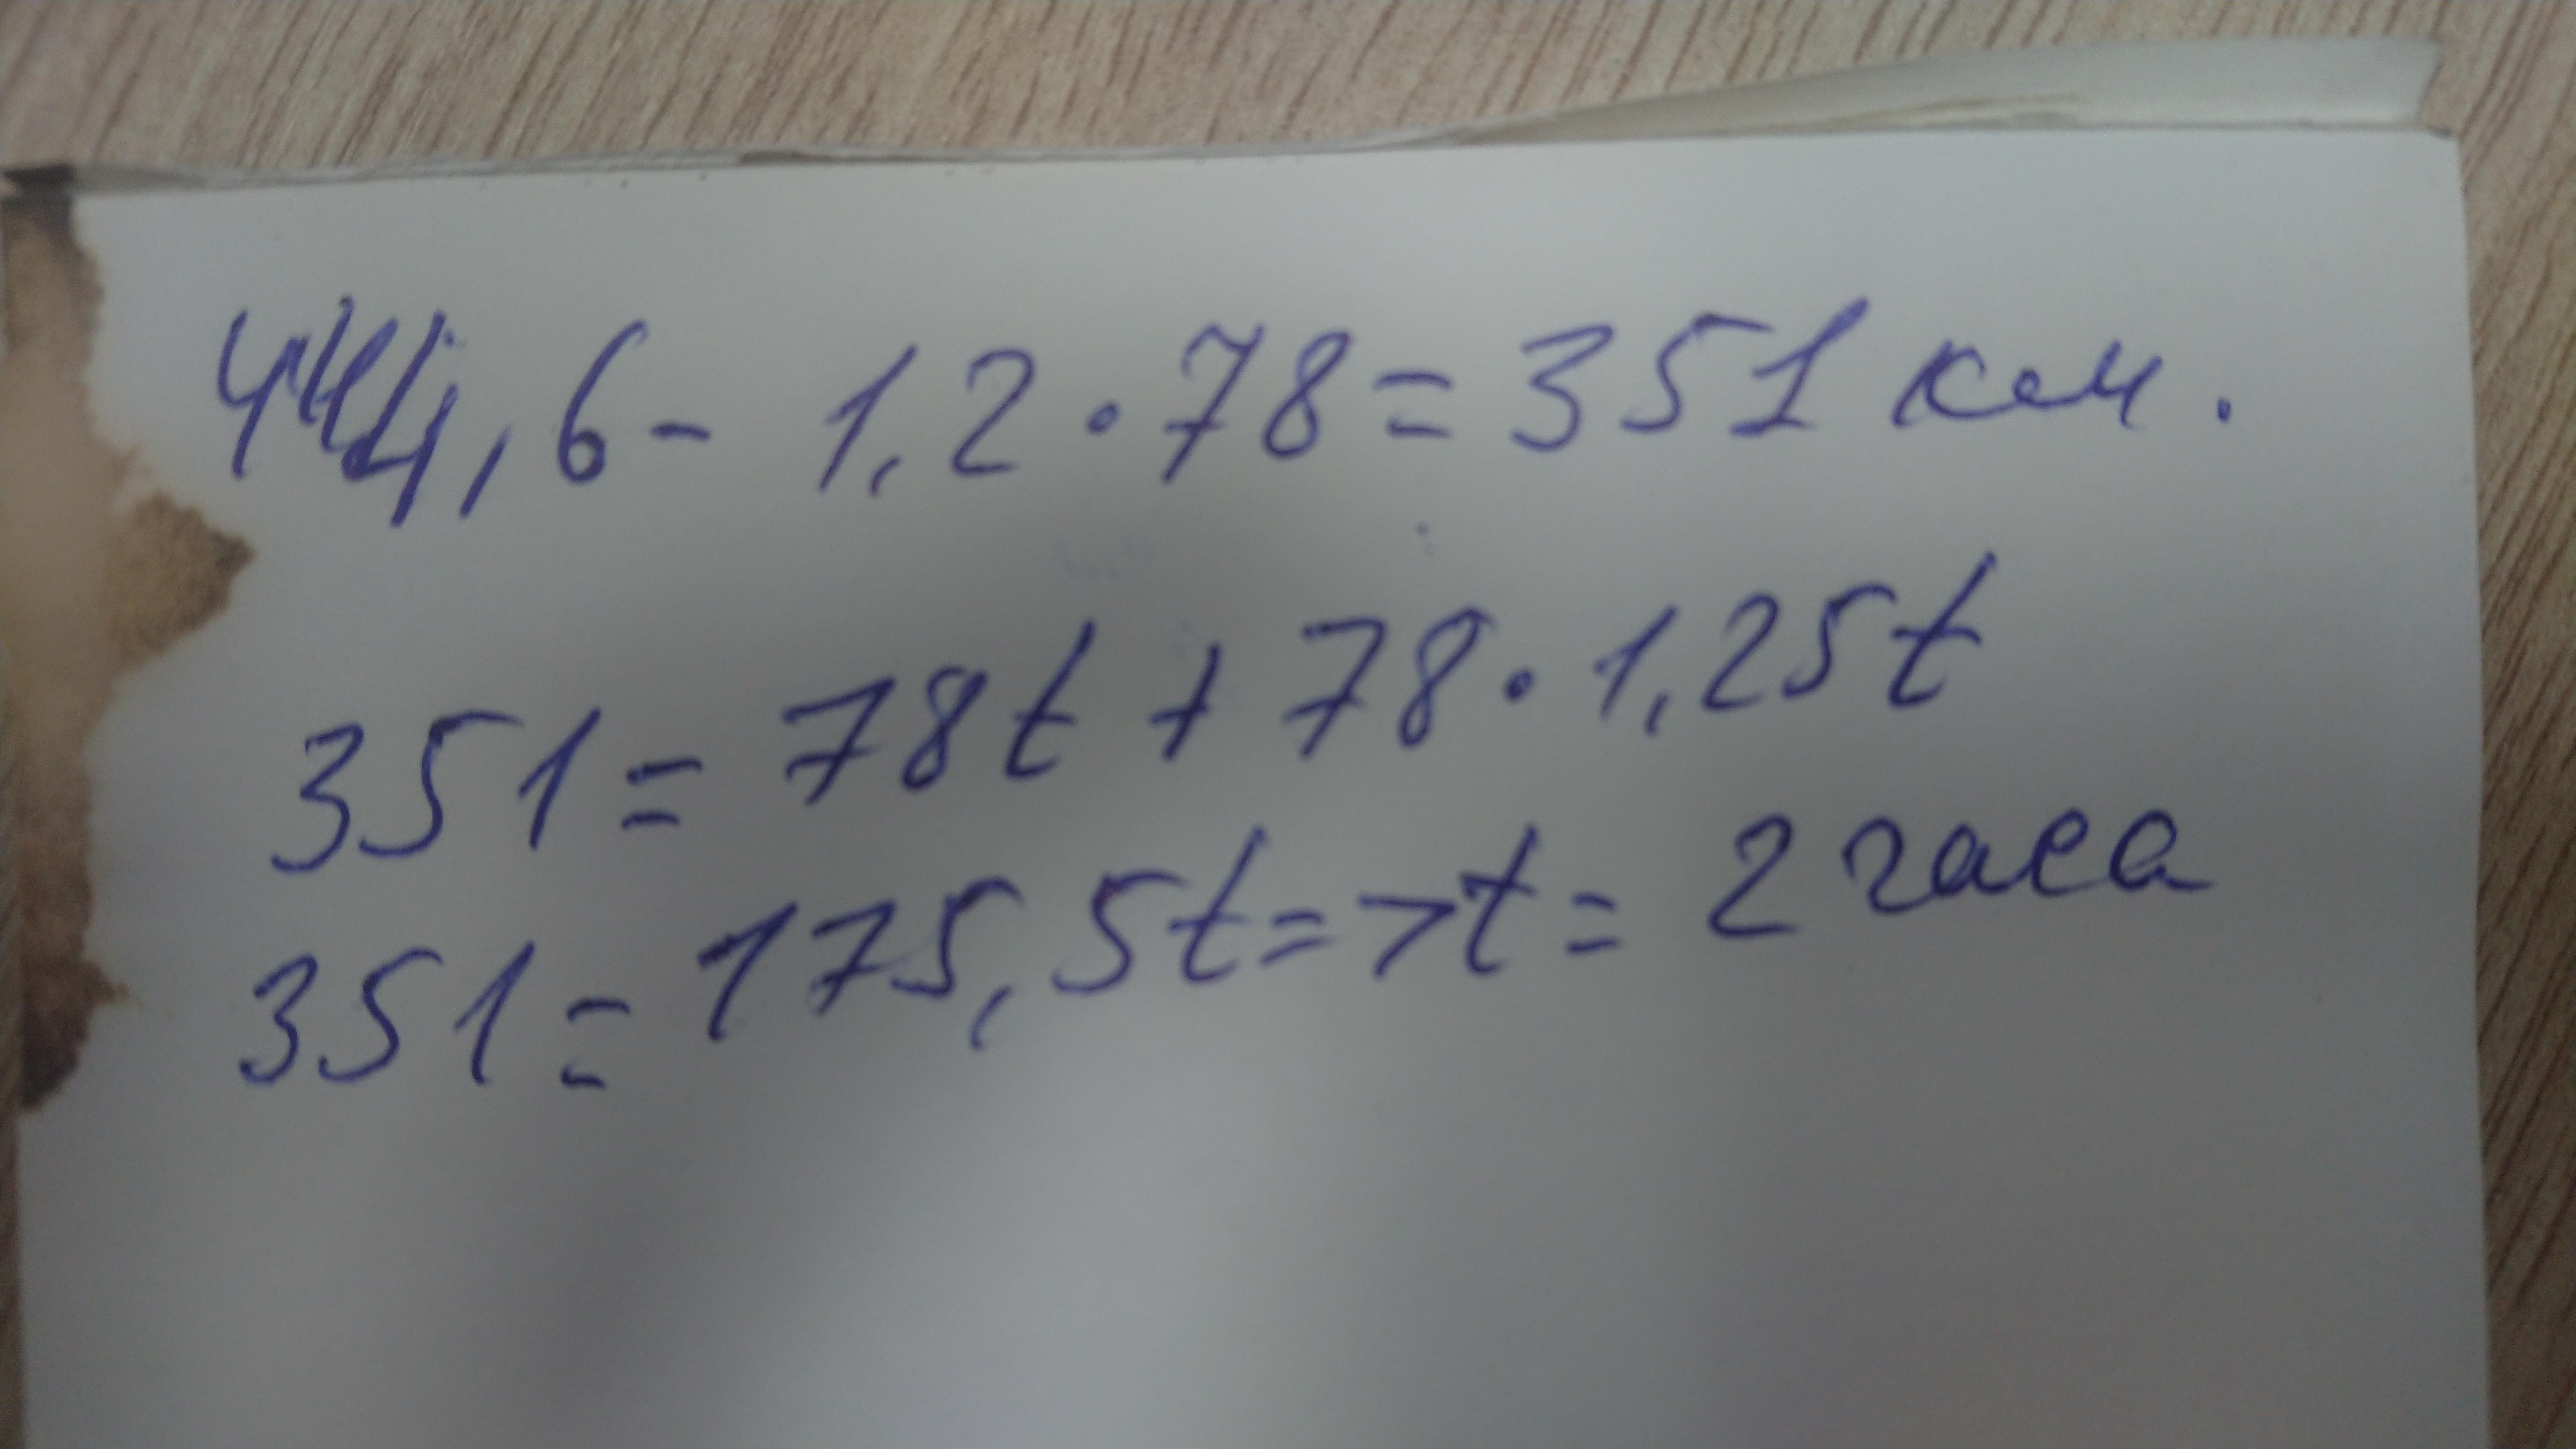 444,6 - 1,2 · 78 = 351 км.
351 = 78t + 78 · 1,25t
351 = 175,5t => t = 2 часа